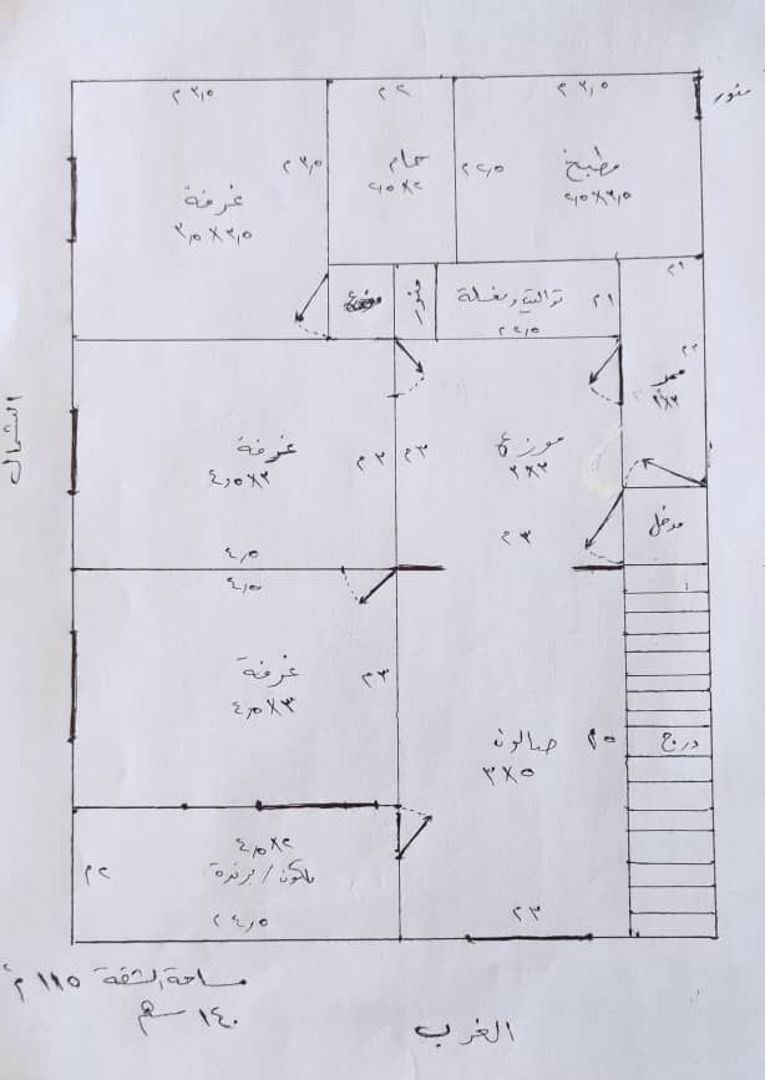 ٣,٥ م
٢ م
٣,٥ م
منور
غرفة
٣,٥ X ٣,٥
٣,٥ م
حمام
٢,٥ X ٢
٢,٥ م
مطبخ
٢,٥ X ٣,٥
منور
تواليت ومغسلة
١ م
٢,٥ م
١ م
٣ م
ممر
الشمال
غرفة
٤,٥ X ٣
٣ م
٤,٥
٣ م
موزع
٣ X ٣
٣ م
مدخل
٤,٥
غرفة
٤,٥ X ٣
٣ م
صالون
٣ X ٥
٥ م
درج
٤,٥ X ٢
بلكون / برندة
٢ م
٤,٥ م
٣ م
مساحة الشقة ١١٥ م٢
١٤٠ سهم
الغرب